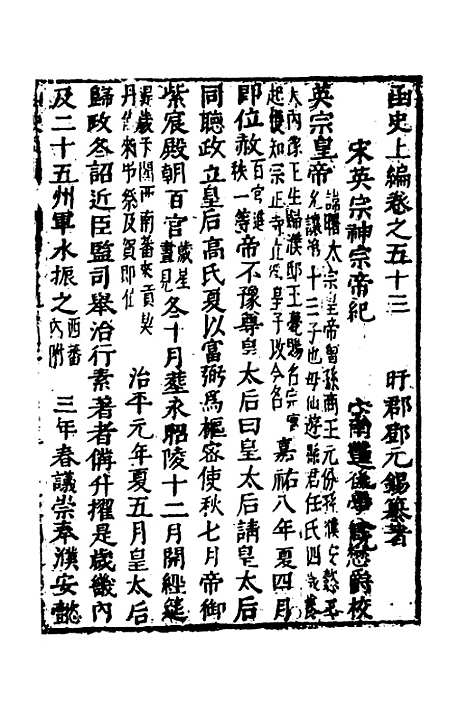 函史上編卷之五十三　盱郡鄧元錫纂著
宋英宗神宗帝紀　後學　校
英宗皇帝諱曙太宗皇帝曾孫商王元份孫濮安懿王允讓第十三子也母仙遊縣君任氏四歲養
大內後王生歸濮邸王薨賜名宗實起復知宗正寺立爲皇子改今名嘉祐八年夏四月
即位赦百官進秩一等帝不豫尊皇太后曰皇太后請皇太后
同聽政立皇后高氏夏以富弼爲樞密使秋七月帝御
紫宸殿朝百官歲星晝見冬十月葬永昭陵十二月開經筵
是歲于闐西南蕃來貢契丹使來弔祭及賀即位治平元年夏五月皇太后
歸政冬詔近臣監司舉治行素著者備升擢是歲畿內
及二十五州軍水振之西蕃內附三年春議崇奉濮安懿